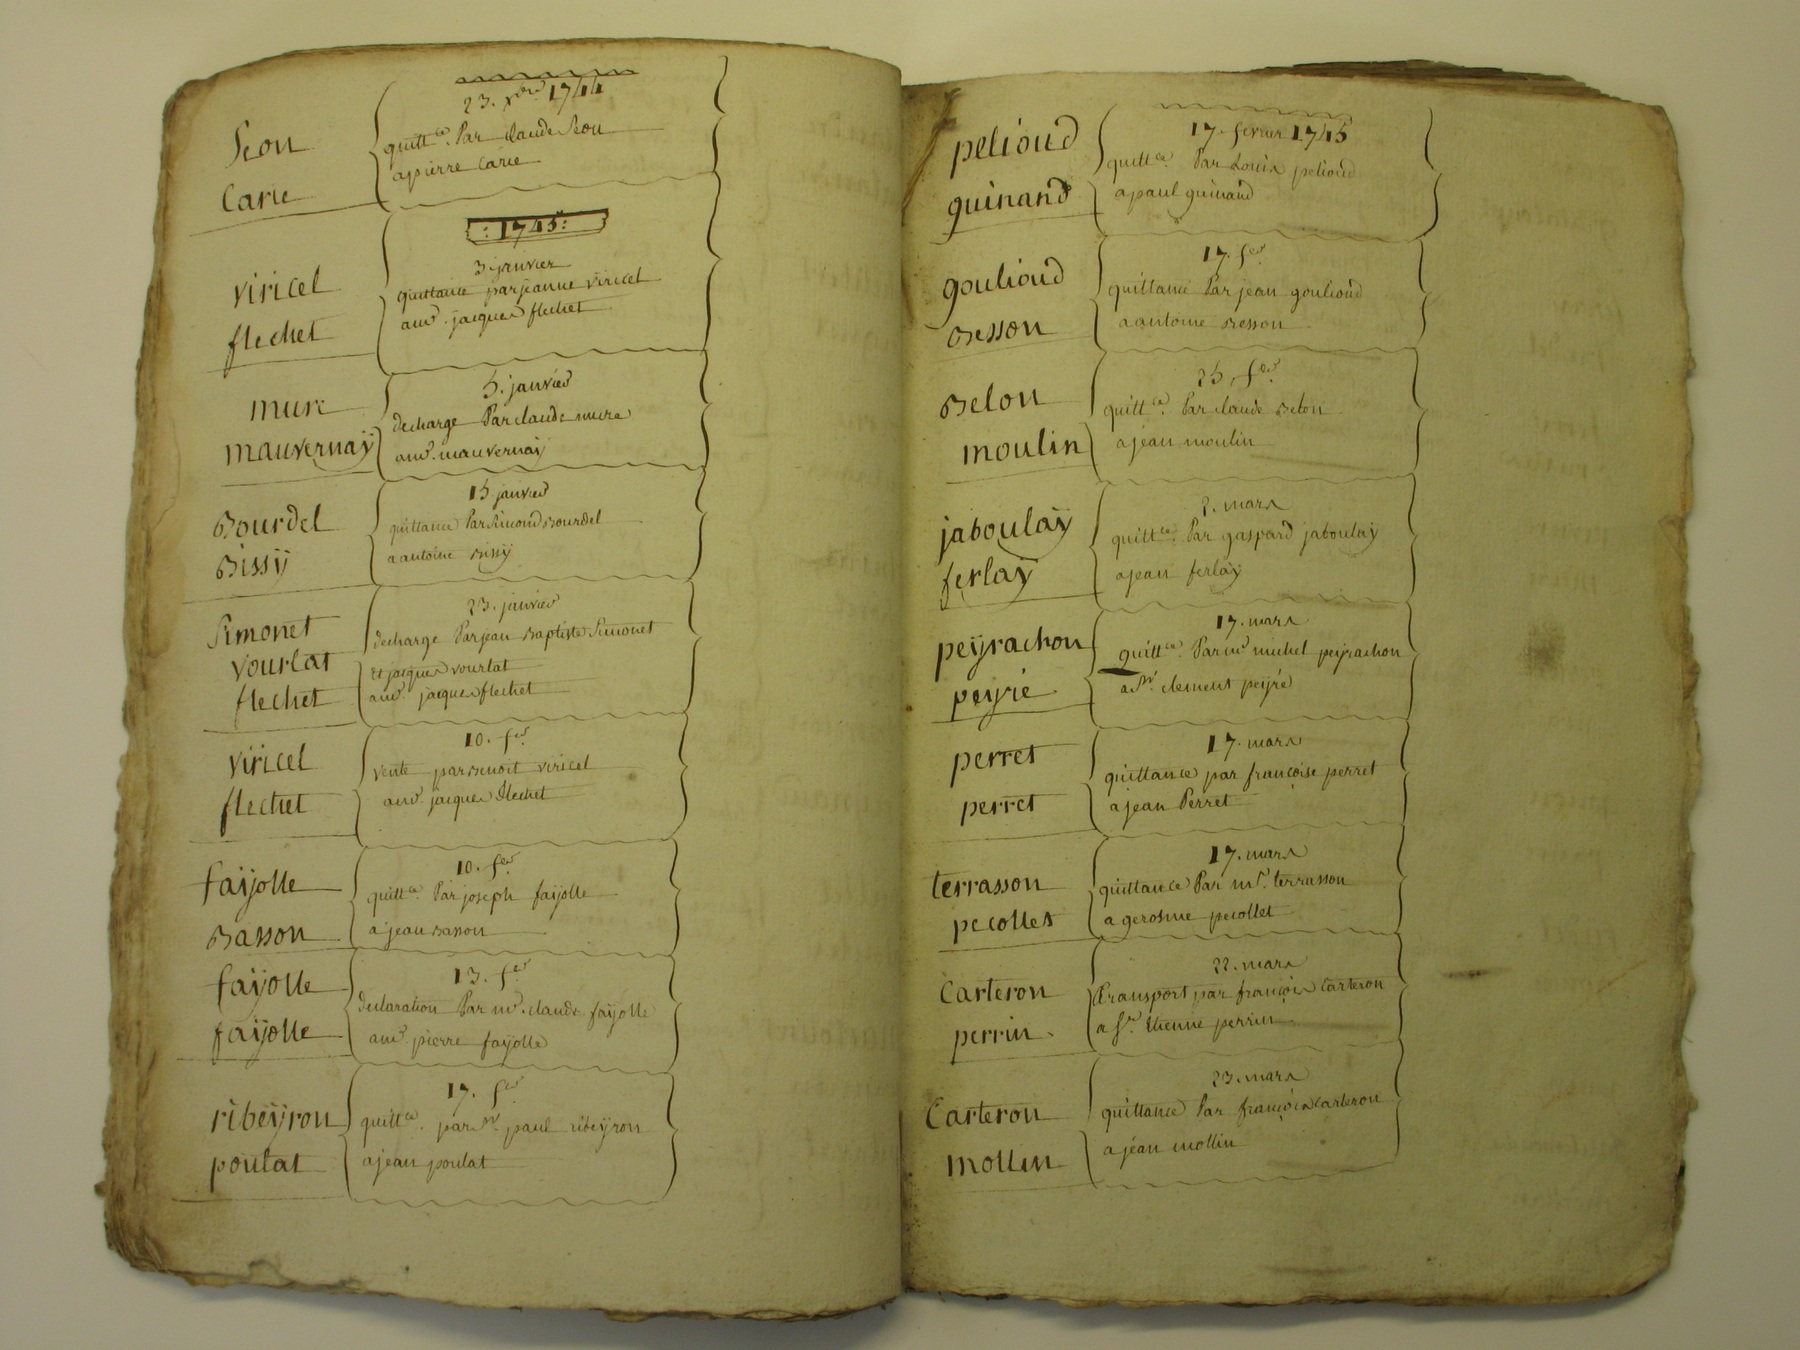 23. xbre 1744
Seon
quittce. Par claude Seon
Carie
a pierre Carie
: 1745 :
3 janvier
viricel
quittance par jeanne viricel
flechet
aud. jacques flechet
5. janvier
mure
decharge Par claude mure
mauvernaÿ
aud. mauvernaÿ
15 janvier
Bourdel
quittance Par Simond Bourdel
Bissÿ
a antoine Bissÿ
23. janvier
Simonet
decharge Par jean Baptiste Simonet
vourlat
et jaques vourlat
flechet
aud. jacques flechet
10. fer.
viricel
vente par Benoit viricel
flechet
aud. jacques flechet
10. fer.
faÿolle
quittce. Par joseph faÿolle
Basson
a jean Basson
13. fer.
faÿolle
declaration Par me. claude faÿolle
faÿolle
aud. pierre faÿolle
17. fer.
ribeÿron
quittce. par Mr. paul ribeÿron
poulat
a jean poulat
17. fevrier 1745
pelioud
quittce. Par Louis pelioud
guinand
a paul guinand
17. fer.
goulioud
quittance Par jean goulioud
Besson
a antoine Besson
25. fer.
Belon
quittce. Par claude Belon
moulin
a jean moulin
2. mars
jaboulaÿ
quittce. Par gaspard jaboulaÿ
ferlaÿ
a jean ferlaÿ
17. mars
peÿrachon
quittce. Par me michel peÿrachon
peÿré
a Mr. clement peÿré
17. mars
perret
quittance par françoise perret
perret
a jean Perret
17. mars
terrasson
quittance Par mr. terrasson
pecollet
a gerosme pecollet
22. mars
Carteron
transport par françois Carteron
perrin
a Sr. Etienne perrin
23. mars
Carteron
quittance Par françois Carteron
mollin
a jean mollin